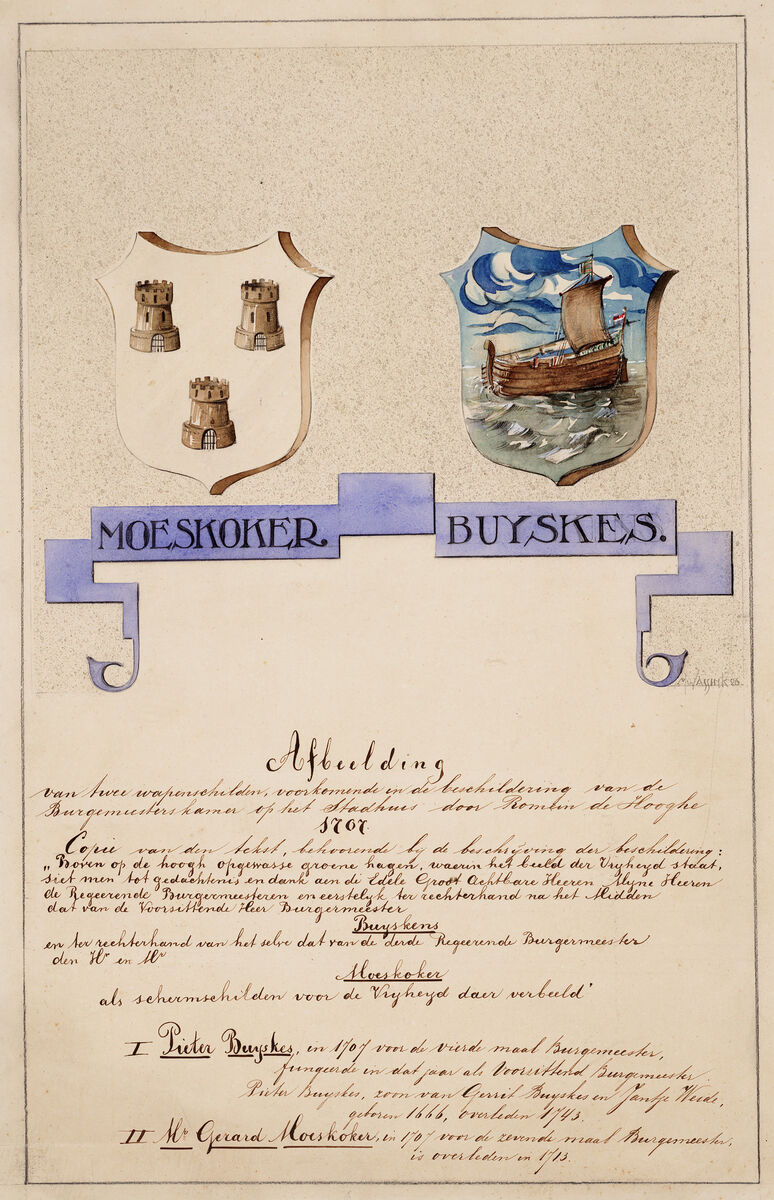 MOESKOKER.
BUYSKES.
Afbeelding
van twee wapenschilden, voorkomende in de beschildering van de
Burgemeesterskamer op het Stadhuis door Romein de Hooghe
1707.
Copie van den tekst, behoorende bij de beschrijving der beschildering:
„Boven op de hoogh opgewasse groene hagen, waerin het beeld der Vryheyd staat,
siet men tot gedachtenis en dank aen de Edele Groot Achtbare Heeren Myne Heeren
de Regeerende Burgermeesteren en eerstelyk ter rechterhand na het Midden
dat van de Voorsittende Heer Burgermeester
Buyskens
en ter rechterhand van het selve dat van de derde Regeerende Burgermeester
den Hr en Mr
Moeskoker
als schermschilden voor de Vryheyd daer verbeeld'
I Pieter Buyskes, in 1707 voor de vierde maal Burgemeester,
fungeerde in dat jaar als Voorsittend Burgemeester.
Pieter Buyskes, zoon van Gerrit Buyskes en Jantje Weede,
geboren 1666, overleden 1743.
II Mr Gerard Moeskoker, in 1707 voor de zevende maal Burgemeester,
is overleden in 1713.